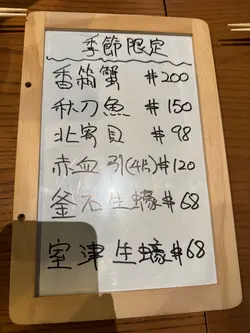 季節限定
香箱蟹 #200
秋刀魚 #150
北寄貝 #98
赤血引(4片)#120
釜石生蠔#68
室津生蠔#68